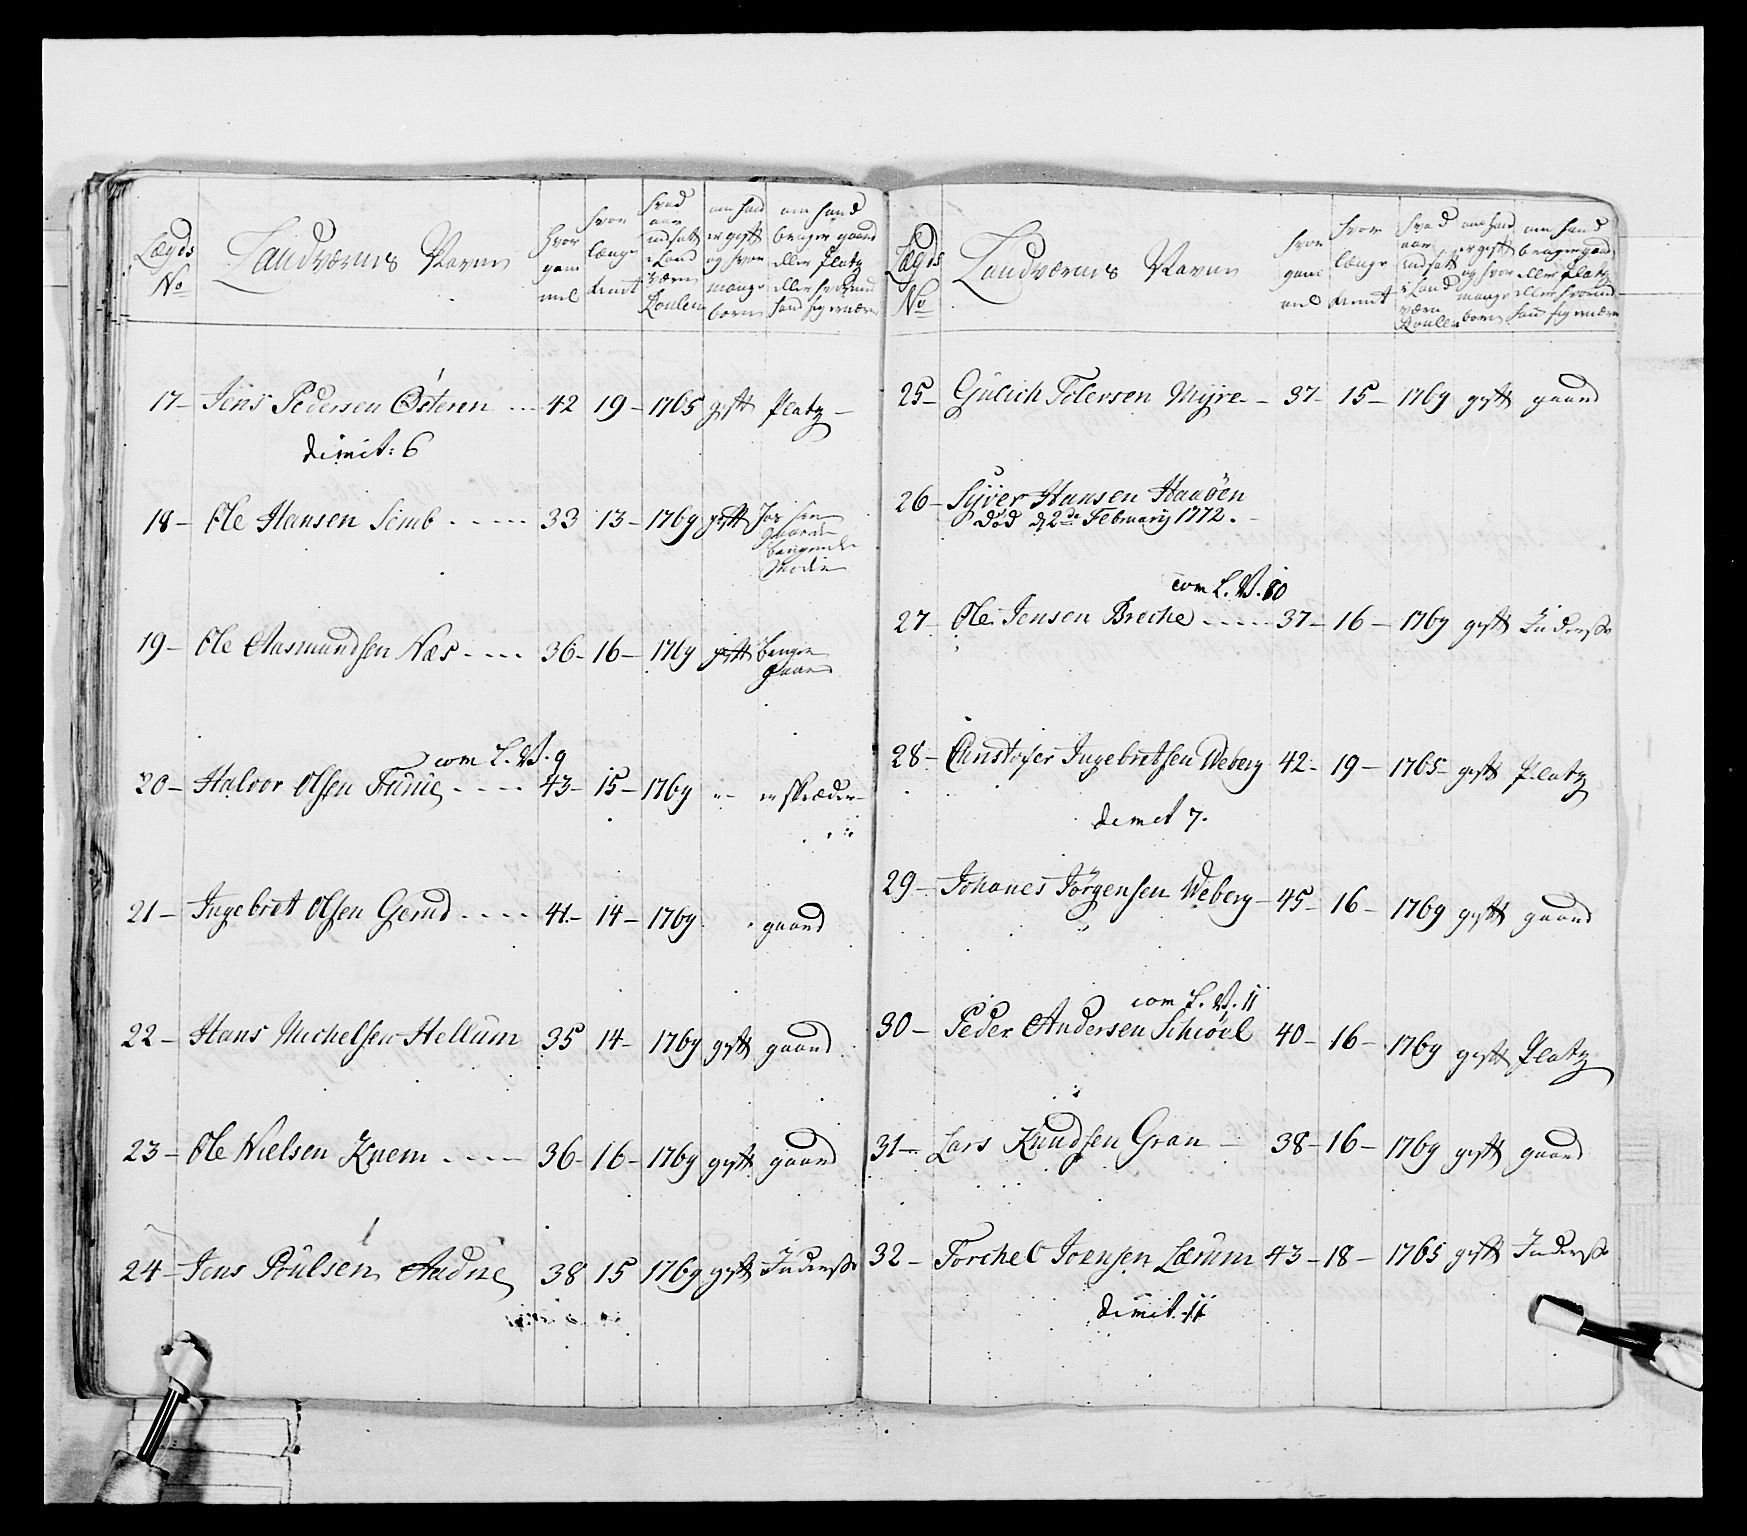 Lægds No
Landværnes Navn
hvor gam mel
hvor længe tient
hvad aar indsatt i Land værn Roulen
om hand er gift og hvor mange børn
om hand bruger gaard eller Platz eller hvormed hand sig ernærer
17 – Jens Pedersen Österen ... 42 19 – 1765 gift Platz –
dimit: 6
18 – Ole Hansen Semb ..... 33 13 – 1769 gift
19 – Ole Aasmundsen Næs .... 36 – 16 – 1769 gift bruger gaard
com L. V. 9
20 – Halvor Olsen .... 43 – 15 – 1769 „ – er Skræder –
21 – Ingebret Olsen Gerud .... 41 – 14 – 1769 . gaard
22 – Hans Michelsen Hellum 35 14 – 1769 gift gaard
23 – Ole Nielsen Knem .... 36 – 16 – 1769 gift gaard
24 – Jens Poulsen Aadne 38 15 1769 gift Inderste
Lægds No
Landværnes Navn
hvor gam mel
hvor længe tient
hvad aar indsatt i Land værn Roulen
om hand er gift og hvor mange børn
om hand bruger gaard eller Platz eller hvormed han sig ernærer
25 – Gulich Tolersen Myre – 37 – 15 – 1769 gift gaard
26 – Syver Hansen Haaöen
död d 2de Februarij 1772.
com L. V. 10
27 – Ole Jensen Breche ..... 37 – 16 – 1769 gift Inderste
28 – Christofer Ingebretsen Weberg 42 – 19 – 1765 – gift Platz
demet 7.
29 – Johanes Jörgensen Weberg – 45 – 16 – 1769 gift gaard
com L. V. 11
30 – Peder Andersen Schiöel 40 – 16 – 1769 gift Platz
31 – Lars Knudsen Gran – 38 – 16 – 1769 gift gaard
32 – Torchel Joensen Lærum 43 – 18 – 1765 gift Inderste
dimit. 11